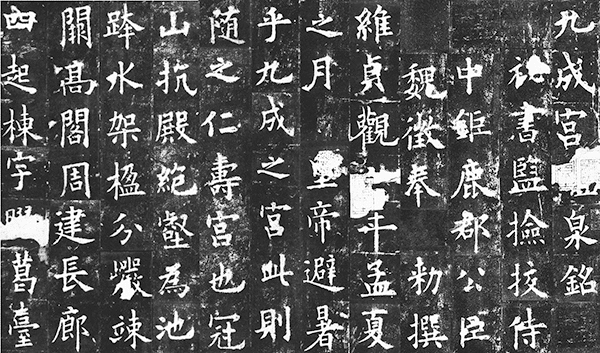 九成宮泉銘
祕書監撿挍侍
中鉅鹿郡公臣
魏徵奉 勑撰
維貞觀年孟夏
之月帝避暑
乎九成之宮此則
随之仁壽宮也冠
山抗殿絶壑為池
跨水架楹分巖竦
闕髙閣周建長廊
四起棟宇葛臺